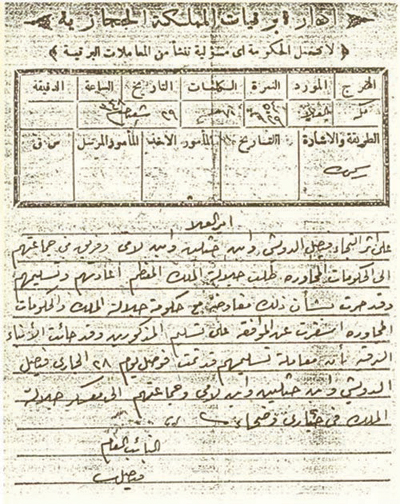 ادارة برقيات المملكة الحجازية
لا تتحمل الحكومة اى مسئولية تنشأ من المعاملات البرقية
المخرج المورد النمرة الكلمات التاريخ الساعة الدقيقة
٢٩ شعبان
الطريقة والاشارة التاريخ المأمور الآخذ المأمور المرسل س ق
على اثر التجاء فيصل الدويش وابن حثلين وابن لامى وفريق من جماعتهم
الى الحكومات المجاورة طلب جلالة الملك المعظم اعادتهم وتسليمهم
وقد جرت بشأن ذلك مفاوضة مع حكومة جلالة الملك والحكومات
المجاورة اسفرت عن الموافقة على تسليم المذكورين وقد جاءت الأنباء
البرقية بأن معاملة تسليمهم قد تمت فوصل يوم ٢٨ الجارى فيصل
الدويش وابن حثلين وابن لامى وجماعتهم الى معسكر جلالة
الملك فى خبارى وضحا
النائب العام
فيصل